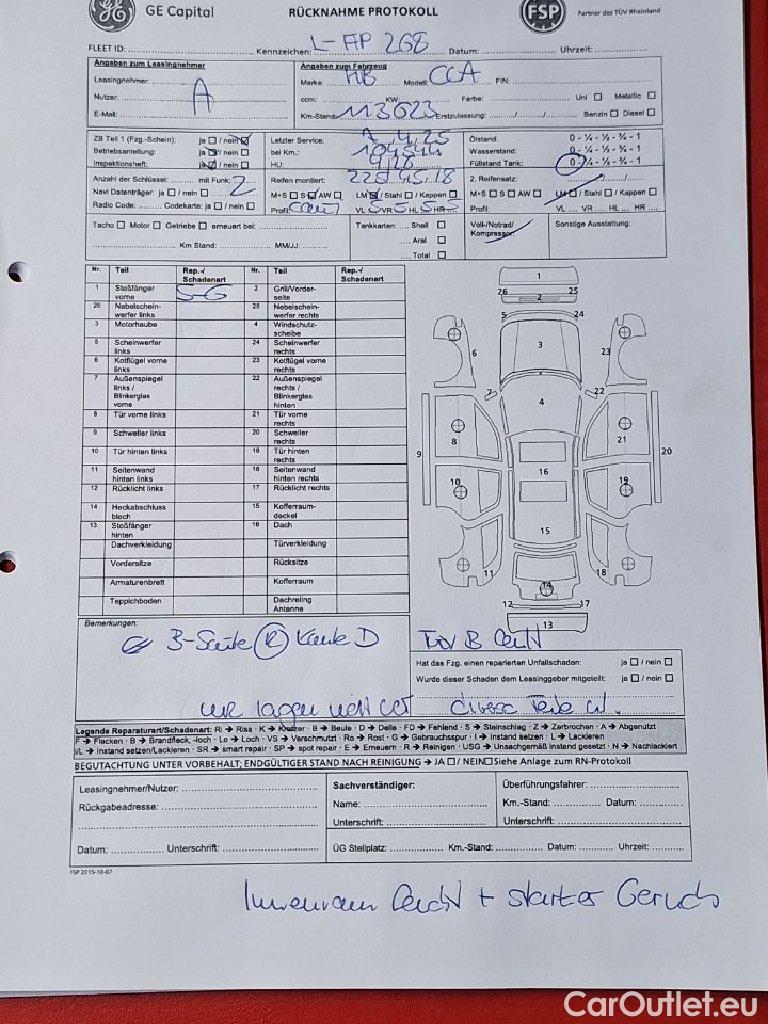 GE Capital
RÜCKNAHME PROTOKOLL
FSP
Partner des TÜV Rheinland
FLEET ID: Kennzeichen: L-AP 268 Datum: Uhrzeit:
Angaben zum Leasingnehmer
Leasingnehmer:
Nutzer: A
E-Mail:
Angaben zum Fahrzeug
Marke: MB Modell: CLA FIN:
ccm: KW Farbe: Uni Metallic
Km-Stand: 113623 Erstzulassung: Benzin Diesel
ZB Teil 1 (Fzg.-Schein): ja / nein
Betriebsanleitung: ja / nein
Inspektionsheft: ja / nein
Letzter Service: 4/25
bei Km.: 104544
HU: 9/26
Ölstand: 0 - ¼ - ½ - ¾ - 1
Wasserstand: 0 - ¼ - ½ - ¾ - 1
Füllstand Tank: 0 - ¼ - ½ - ¾ - 1
Anzahl der Schlüssel: mit Funk: 2
Navi Datenträger: ja / nein
Radio Code: Codekarte: ja / nein
Reifen montiert: 225 45 18
M+S S AW LM / Stahl / Kappen
Profil VL 5 VR 5 HL 5 HR 5
2. Reifensatz:
M+S S AW LM / Stahl / Kappen
Profil: VL VR HL HR
Tacho Motor Getriebe erneuert bei:
Km Stand: MM/JJ:
Tankkarten: Shell
Aral
Total
Voll-/Notrad/
Kompressor
Sonstige Ausstattung:
Nr. Teil Rep.-/ Schadenart Nr. Teil Rep.-/ Schadenart
1 Stoßfänger vorne S-G 2 Grill/Vorderseite
26 Nebelscheinwerfer links 25 Nebelscheinwerfer rechts
3 Motorhaube 4 Windschutzscheibe
5 Scheinwerfer links 24 Scheinwerfer rechts
6 Kotflügel vorne links 23 Kotflügel vorne rechts
7 Außenspiegel links / Blinkerglas vorne 22 Außenspiegel rechts / Blinkerglas hinten
8 Tür vorne links 21 Tür vorne rechts
9 Schweller links 20 Schweller rechts
10 Tür hinten links 19 Tür hinten rechts
11 Seitenwand hinten links 18 Seitenwand hinten rechts
12 Rücklicht links 17 Rücklicht rechts
14 Heckabschlussblech 15 Kofferraumdeckel
13 Stoßfänger hinten 16 Dach
Dachverkleidung Türverkleidung
Vordersitze Rücksitze
Armaturenbrett Kofferraum
Teppichboden Dachreling Antenne
1
2
26 25
5 24
3
6 23
7 22
4
8 21
9 20
10 19
16
15
11 18
14
12 17
13
Bemerkungen:
B-Säule R Kante D
Hat das Fzg. einen reparierten Unfallschaden: ja / nein
Wurde dieser Schaden dem Leasinggeber mitgeteilt: ja / nein
Legende Reparaturart/Schadenart: Ri → Riss · K → Kratzer · B → Beule · D → Delle · FD → Fehlend · S → Steinschlag · Z → Zerbrochen · A → Abgenutzt
F → Flecken · B → Brandfleck, -loch · Lo → Loch · VS → Verschmutzt · Ro → Rost · G → Gebrauchsspur · I → Instand setzen · L → Lackieren
I/L → Instand setzen/Lackieren · SR → smart repair · SP → spot repair · E → Erneuern · R → Reinigen · USG → Unsachgemäß instand gesetzt · N → Nachlackiert
BEGUTACHTUNG UNTER VORBEHALT; ENDGÜLTIGER STAND NACH REINIGUNG → JA / NEIN Siehe Anlage zum RN-Protokoll
Leasingnehmer/Nutzer:
Rückgabeadresse:
Datum: Unterschrift:
Sachverständiger:
Name:
Unterschrift:
Überführungsfahrer:
Km.-Stand: Datum:
Unterschrift:
ÜG Stellplatz: Km.-Stand: Datum: Uhrzeit:
FSP 2015-10-07
Innenraum + starker Geruch
CarOutlet.eu